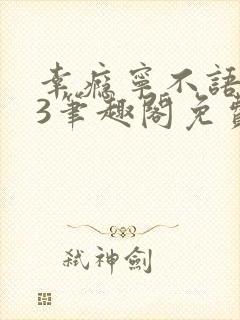 幸瘾寧不語
3筆趣閣免費
弒神劍